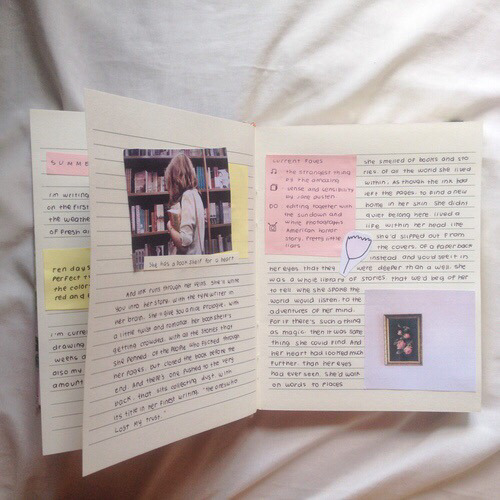 SUMME
I'm writing
on the first
the weathe
of fresh ai
ten days
perfect t
the color
red and
I'm curre
drawing
weeks a
also my
amount
She has a book shelf for a heart
And ink runs through her veins. She'll write
you into her story, with the typewriter in
her brain. She'll give you a nice prologue, with
a little twist and romance. Her bookshelf's
getting crowded, with all the stories that
she penned, of the people who flicked through
her pages, but closed the book before the
end. And there's one pushed to the very
back, that sits collecting dust, with
its title in her finest writing, "the ones who
lost my trust."
current faves
the strangest thing
by the amazing
sense and sensibility
by jane austen
editing together with
the sundown and
while photographs
American horror
story, pretty little
liars
She smelled of books and sto
ries of all the world she lived
within. As though the ink had
left the pages, to find a new
home in her skin. She didn't
quiet belong here, lived a
life within her head, like
she'd slipped out from
the covers, of a paperback
instead. And you'd see it in
her eyes that they were deeper than a well, she
was a whole library of stories, that we'd beg of her
to tell. Why she spoke the
world would listen, to the
adventures of her mind.
For if there's such a thing
as magic, then it was some
thing she could find. And
her heart had looked much
further, than her eyes
had ever seen, she'd walk
on words to places